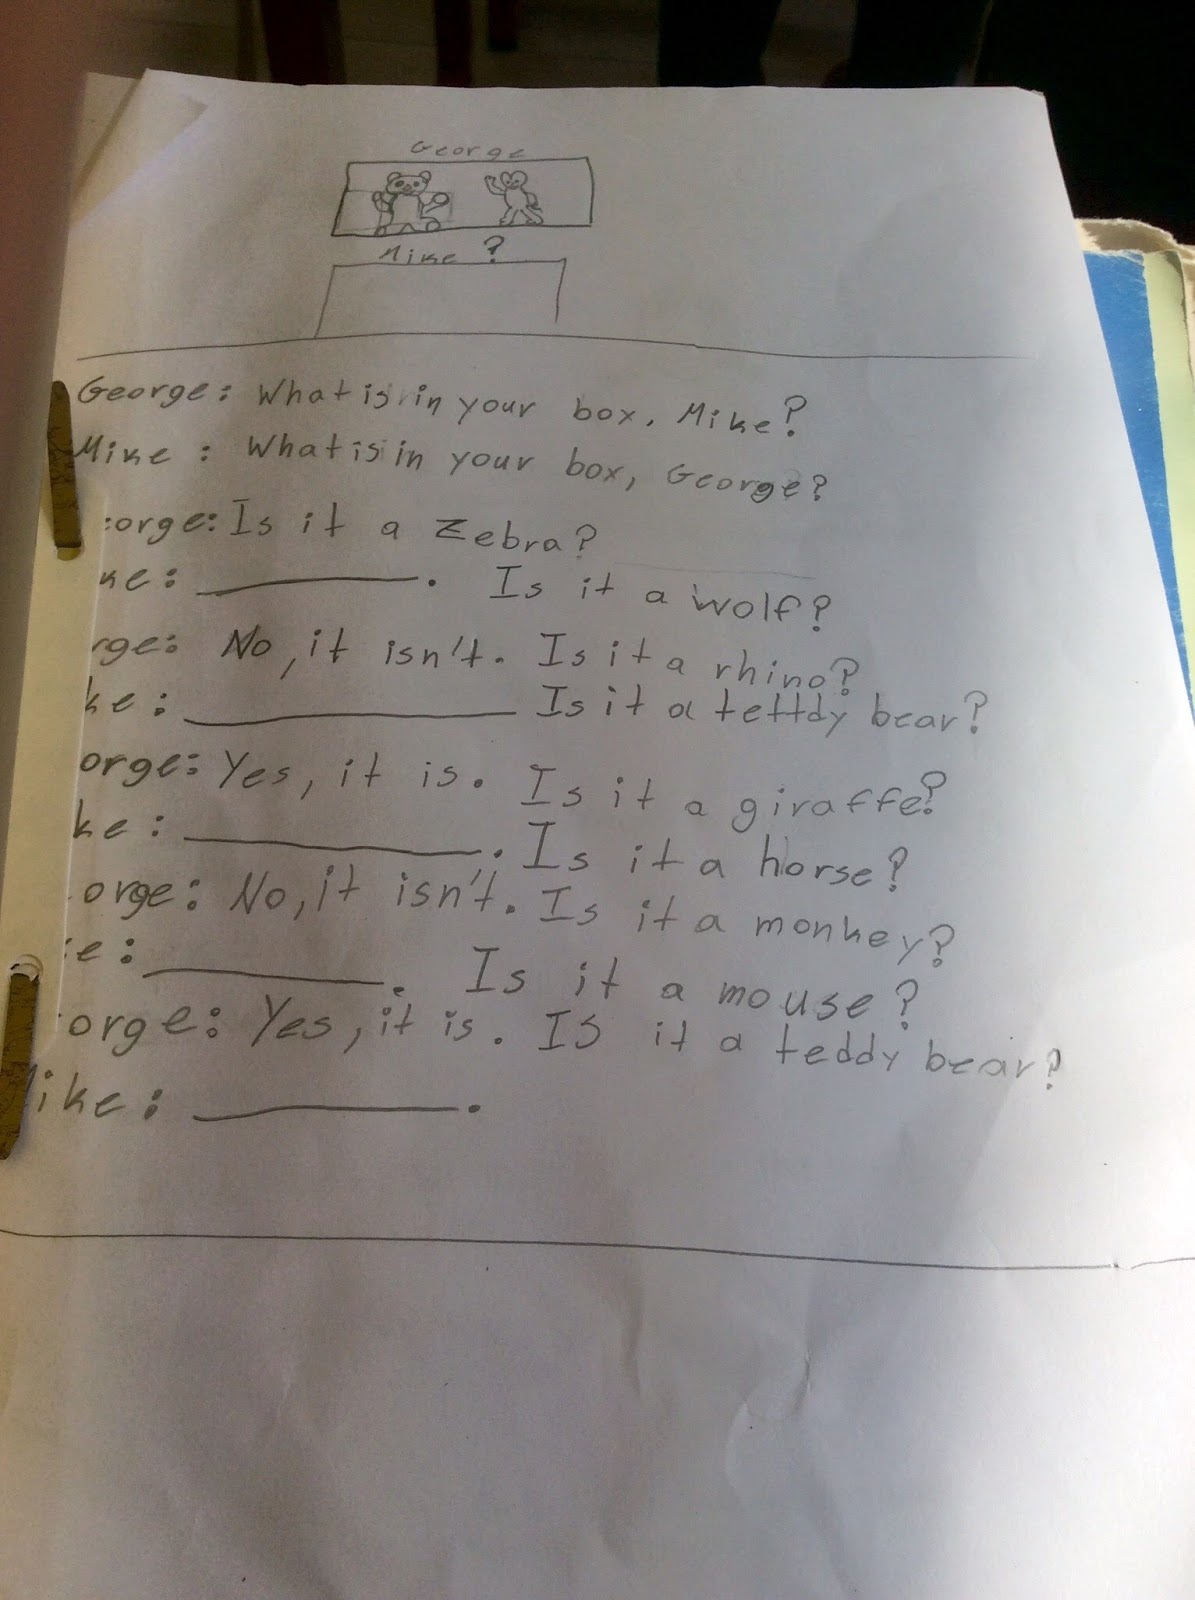 George
Mike ?
George: What is in your box, Mike?
Mike : What is in your box, George?
orge: Is it a Zebra?
ke: ________. Is it a wolf?
rge: No, it isn't. Is it a rhino?
ke : ________ Is it a tettdy bear?
orge: Yes, it is. Is it a giraffe?
ke : ________. Is it a horse?
orge: No, it isn't. Is it a monkey?
e : ________. Is it a mouse?
orge: Yes, it is. IS it a teddy bear?
ike : ________.